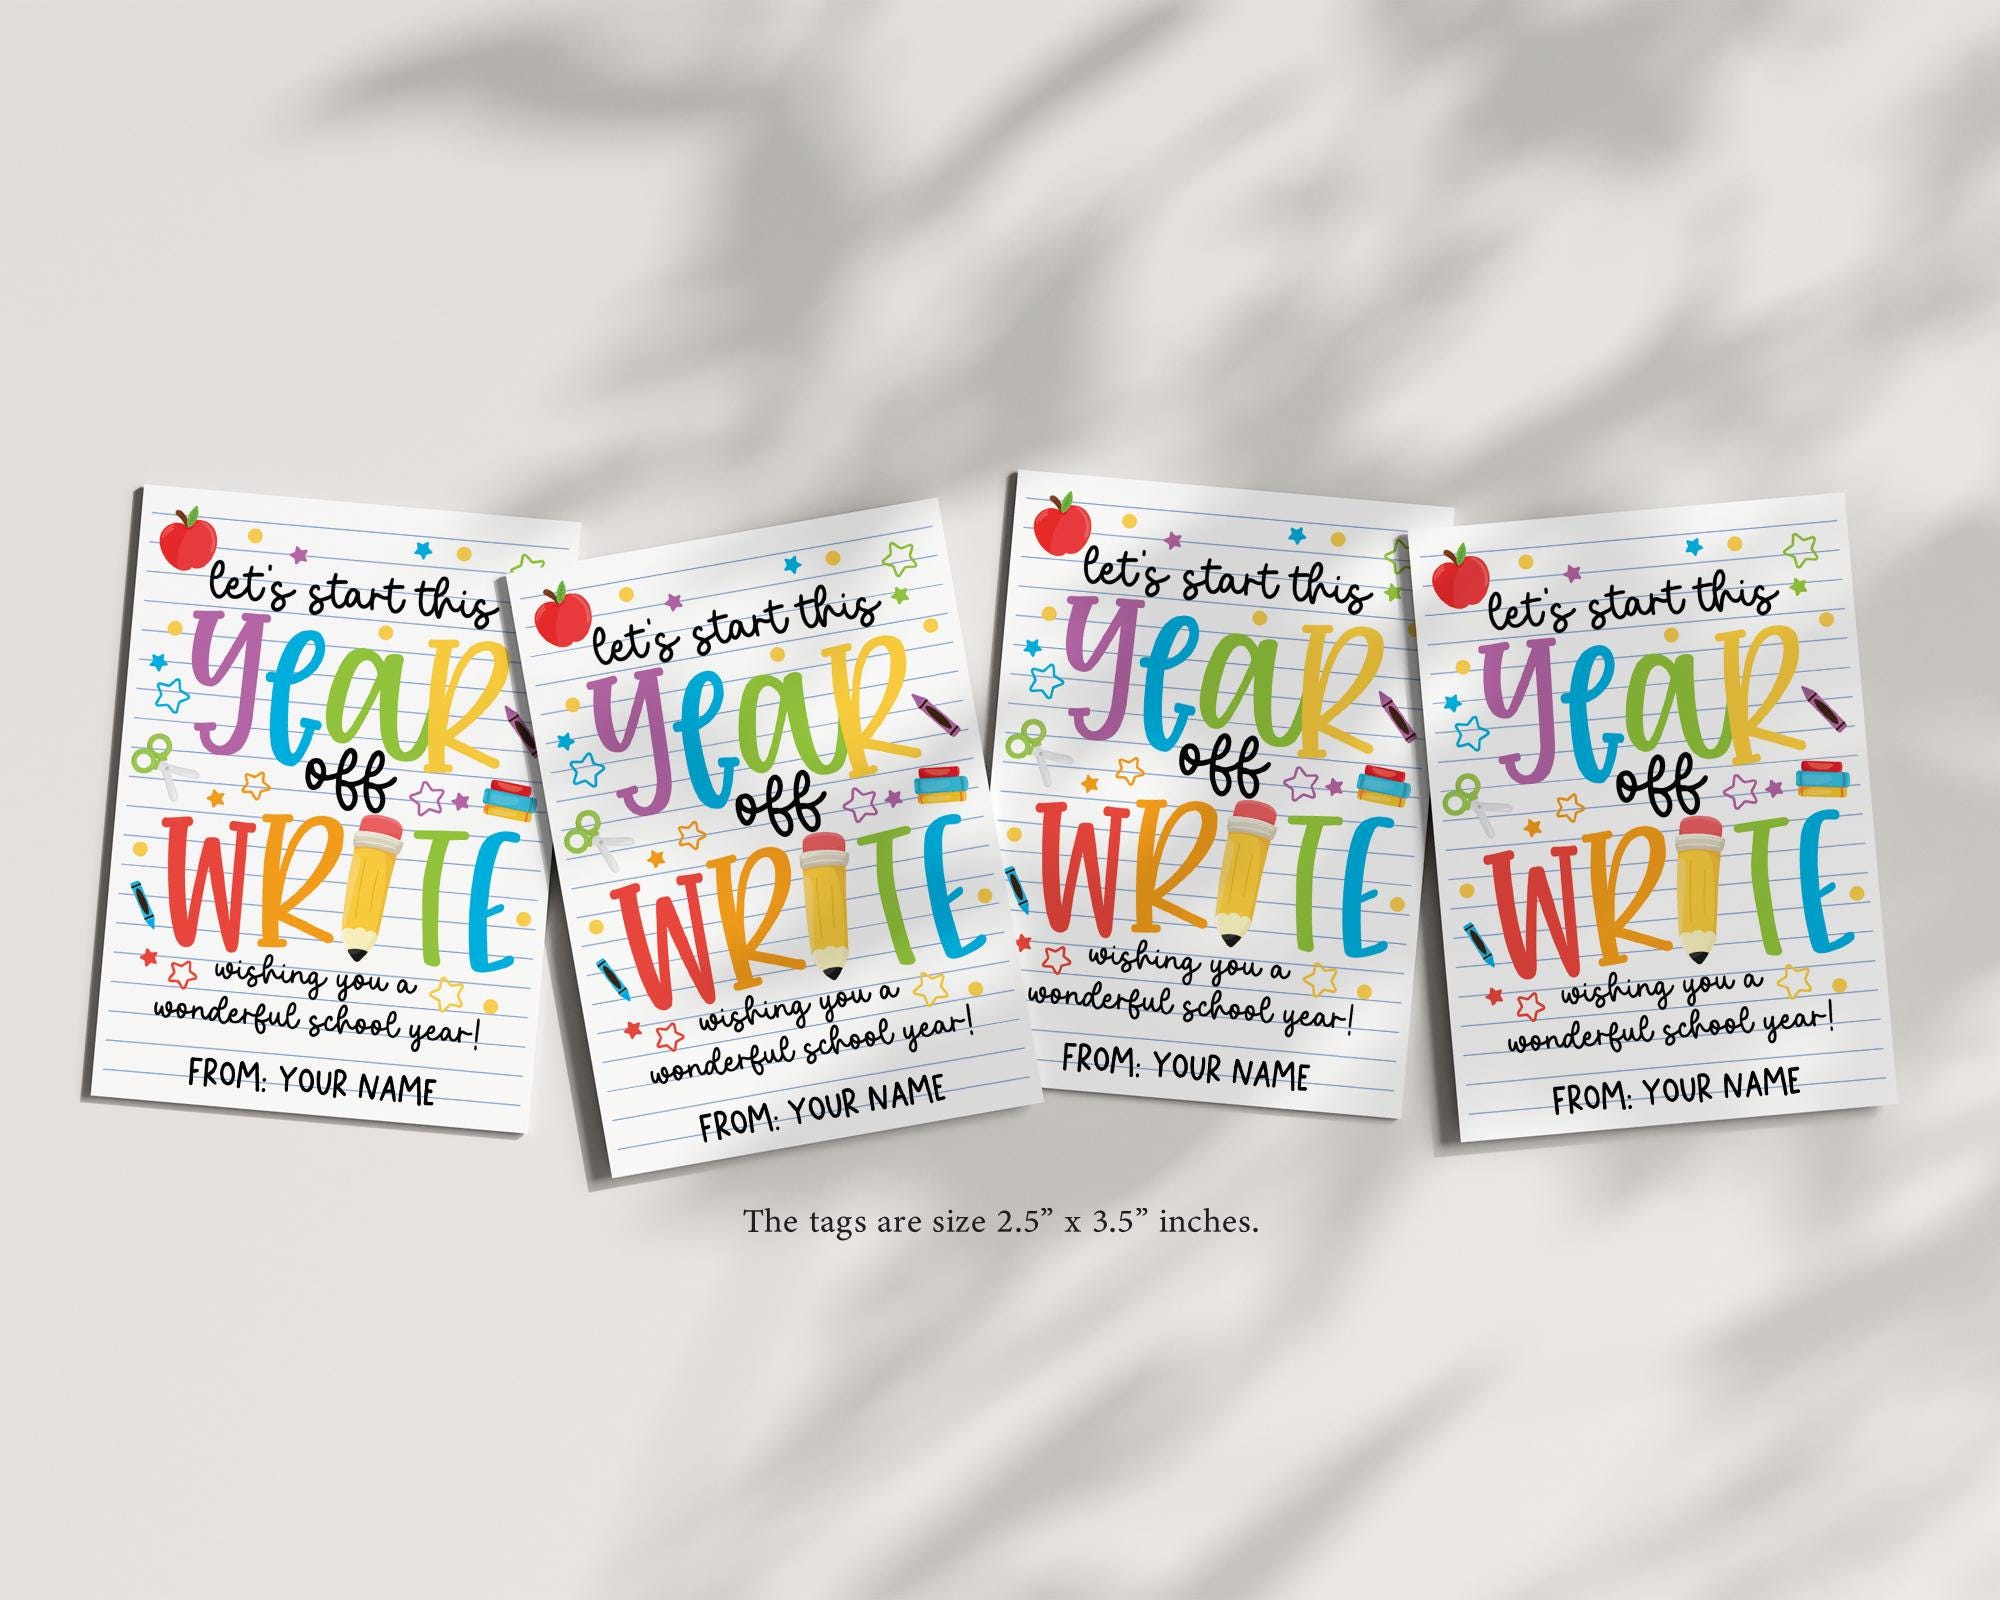 let's start this
YEAR
off
WRITE
wishing you a
wonderful school year!
FROM: YOUR NAME
let's start this
YEAR
off
WRITE
wishing you a
wonderful school year!
FROM: YOUR NAME
let's start this
YEAR
off
WRITE
wishing you a
wonderful school year!
FROM: YOUR NAME
let's start this
YEAR
off
WRITE
wishing you a
wonderful school year!
FROM: YOUR NAME
The tags are size 2.5” x 3.5” inches.